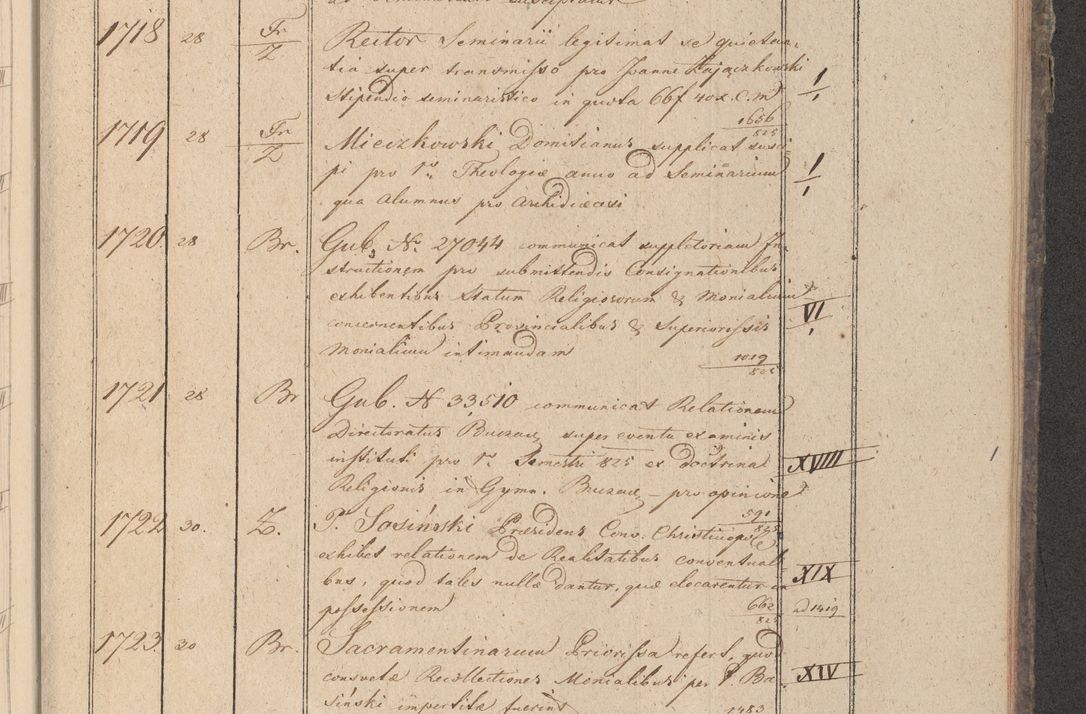 1718 28 Fr/Z Rector Seminarii legitimat se quietan
tia super transmisso pro Joanne Zajączkowski
Stipendio seminaristico in quota 66f 40x. C. M. I/1
1656/825
1719 28 Fr/Z Mieczkowski Domitianus supplicat susci
pi pro 1o Theologiæ anno ad Seminarium I/1
qua Alumnus pro Archidiæcesi
1720 28 Br. Gub. No. 27044 communicat suppletoriam In
structionem pro submittendis Consignationibus
exhibentibus Statum Religiosorum & Monialium VI/1
concernentibus Provincialibus & Superiorissis
Monialium intimandam 1019/825
1721 28 Br Gub. N 33510 communicat Relationem
Directoratus Buczacz. super eventu examinis
instituti pro 1o Semestri 825 ex doctrina XVIII
Religionis in Gymn. Buczacz – pro opinione
591/825
1722 30. Z. P. Sosiński Præsidens Conv. Christinopol
exhibet relationem de Realitatibus conventuali
bus, quod tales nullæ dantur, quæ elocarentur in XIX
possessionem 662/825 ad 1419
1723. 30 Br. Sacramentinarum Priorissa refert, quod
consuetæ Recollectiones Monialibus per P. Ba XIV
siński impertitæ fuerint 1483